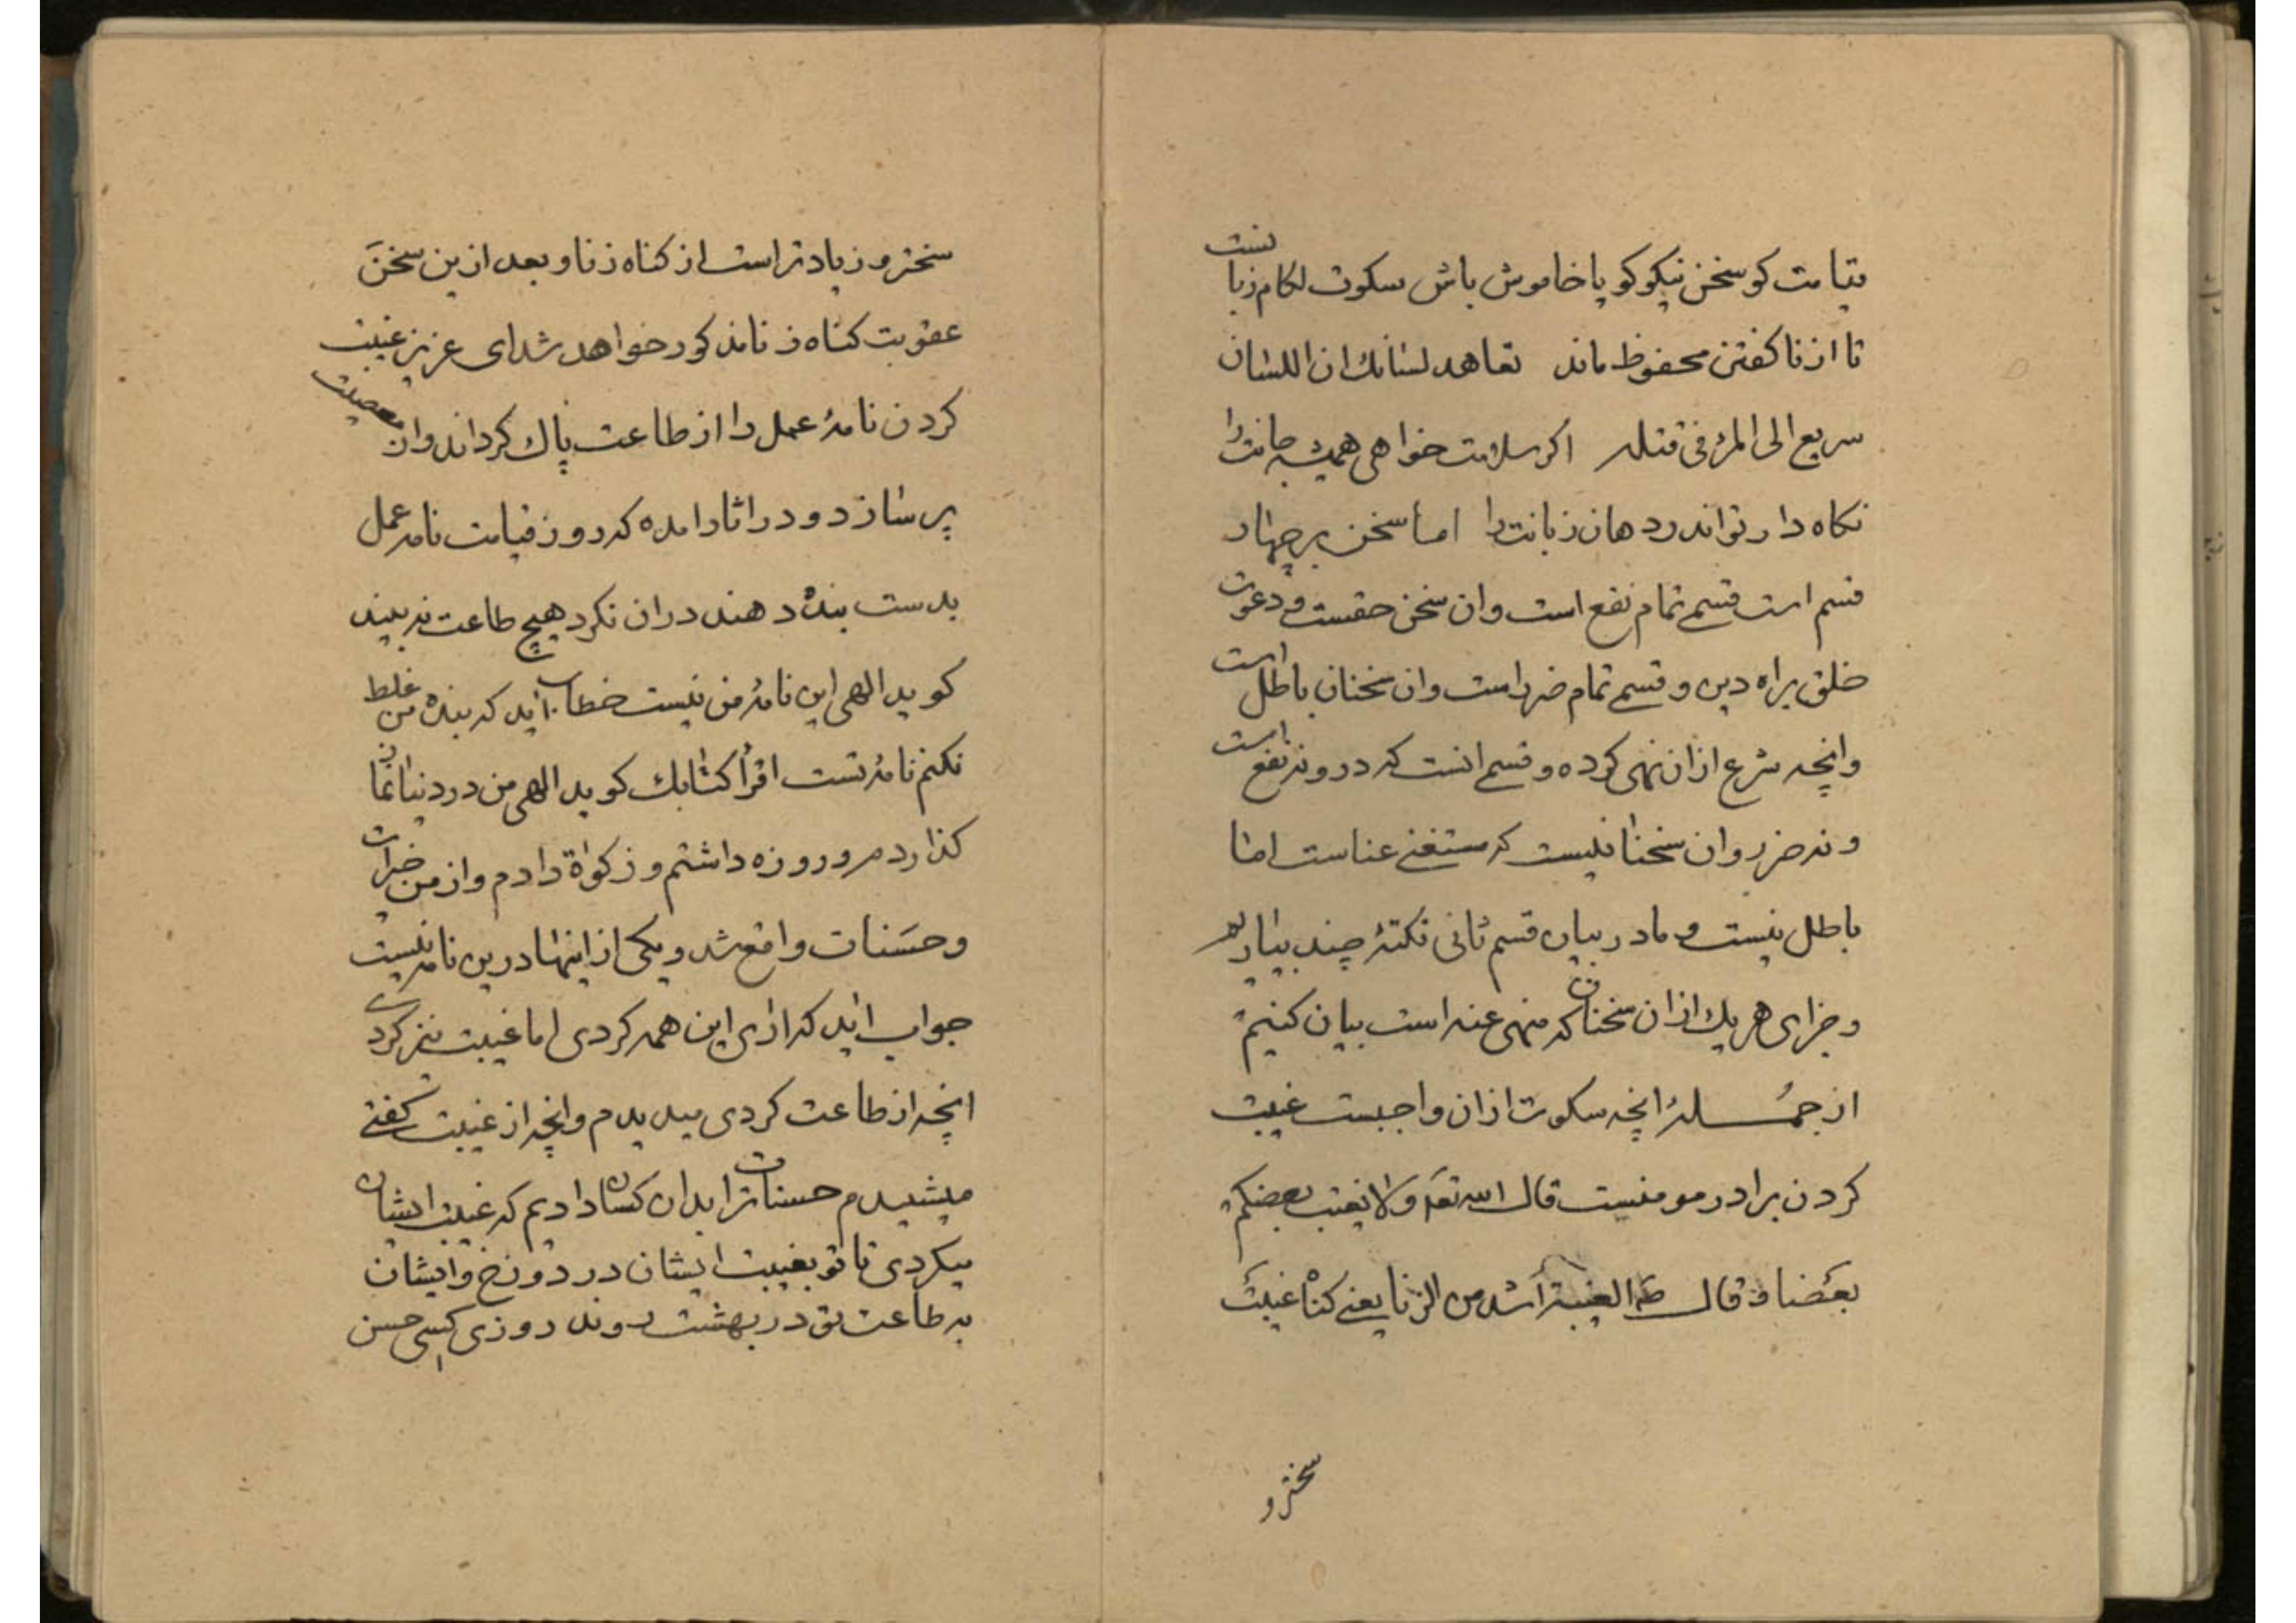 قیامت کو سخن نیکو کو یا خاموش باش سکوت لکام زبانست
تا از ناکفتن محفوظ ماند تعاهد لسانك ان اللسان
سریع الی المرء فی قتله اکر سلامت خواهی همیشه جانت را
نکاه دار تو اندر دهان زبانت را اما سخن بر چهار
قسم است قسمے تمام نفع است وان سخن حقست و دعوت
خلق براه دین و قسمے تمام ضر است وان سخنان باطل است
وانچه شرع ازان نهی کرده و قسمے انست که درو نه نفع است
و نه ضرر وان سخنانیست که مستغنے عناست اما
باطل نیست و ما در بیان قسم ثانی نکتۀ چند بیاریم
و جزای هر یك ازان سخنان که منهی عنه است بیان کنیم
از جمـــلۀ انچه سکوت ازان واجبست غیبت
کردن برادر مومنست قال الله تع ولا یغتب بعضکم
بعضا و قال الغیبة اشد من الزنا یعنے کناه غیبت
سختر و
سختر و زیادتر است از کناه زنا و بعد ازین سخن
عقوبت کناه زنا مذکور خواهد شد ای عزیز غیبت
کردن نامۀ عمل را از طاعت پاك کرداند و از معصیت
پر سازد و در اثار امده که روز قیامت نامه عمل
بدست بنده دهند دران نکرد هیچ طاعت نه بیند
کوید الهی این نامۀ من نیست خطاب اید که بنده من غلط
نکنم نامۀ تست اقرأ کتابك کوید الهی من در دنیا نماز
کذاردم و روزه داشتم و زکواة دادم و از من خیرات
و حسنات واقع شد و یکی از اینها درین نامه نیست
جواب اید که ازی این همه کردی اما غیبت نیز کردی
انچه از طاعت کردی میدیدم وانچه از غیبت کفتے
میشنیدم حسنات ترا بدان کسان دادیم که غیبت ایشان
میکردی تا تو بغیبت ایشان در دوزخ و ایشان
به طاعت تو در بهشت روند روزی کسی حسن